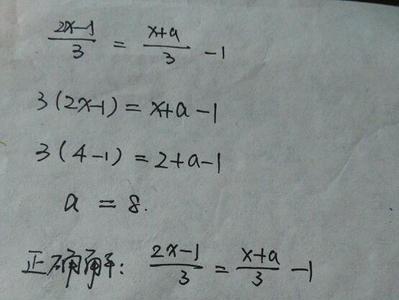 (2x-1)/3 = (x+a)/3 -1
3(2x-1)=x+a-1
3(4-1)=2+a-1
a = 8.
正确解: (2x-1)/3 = (x+a)/3 -1